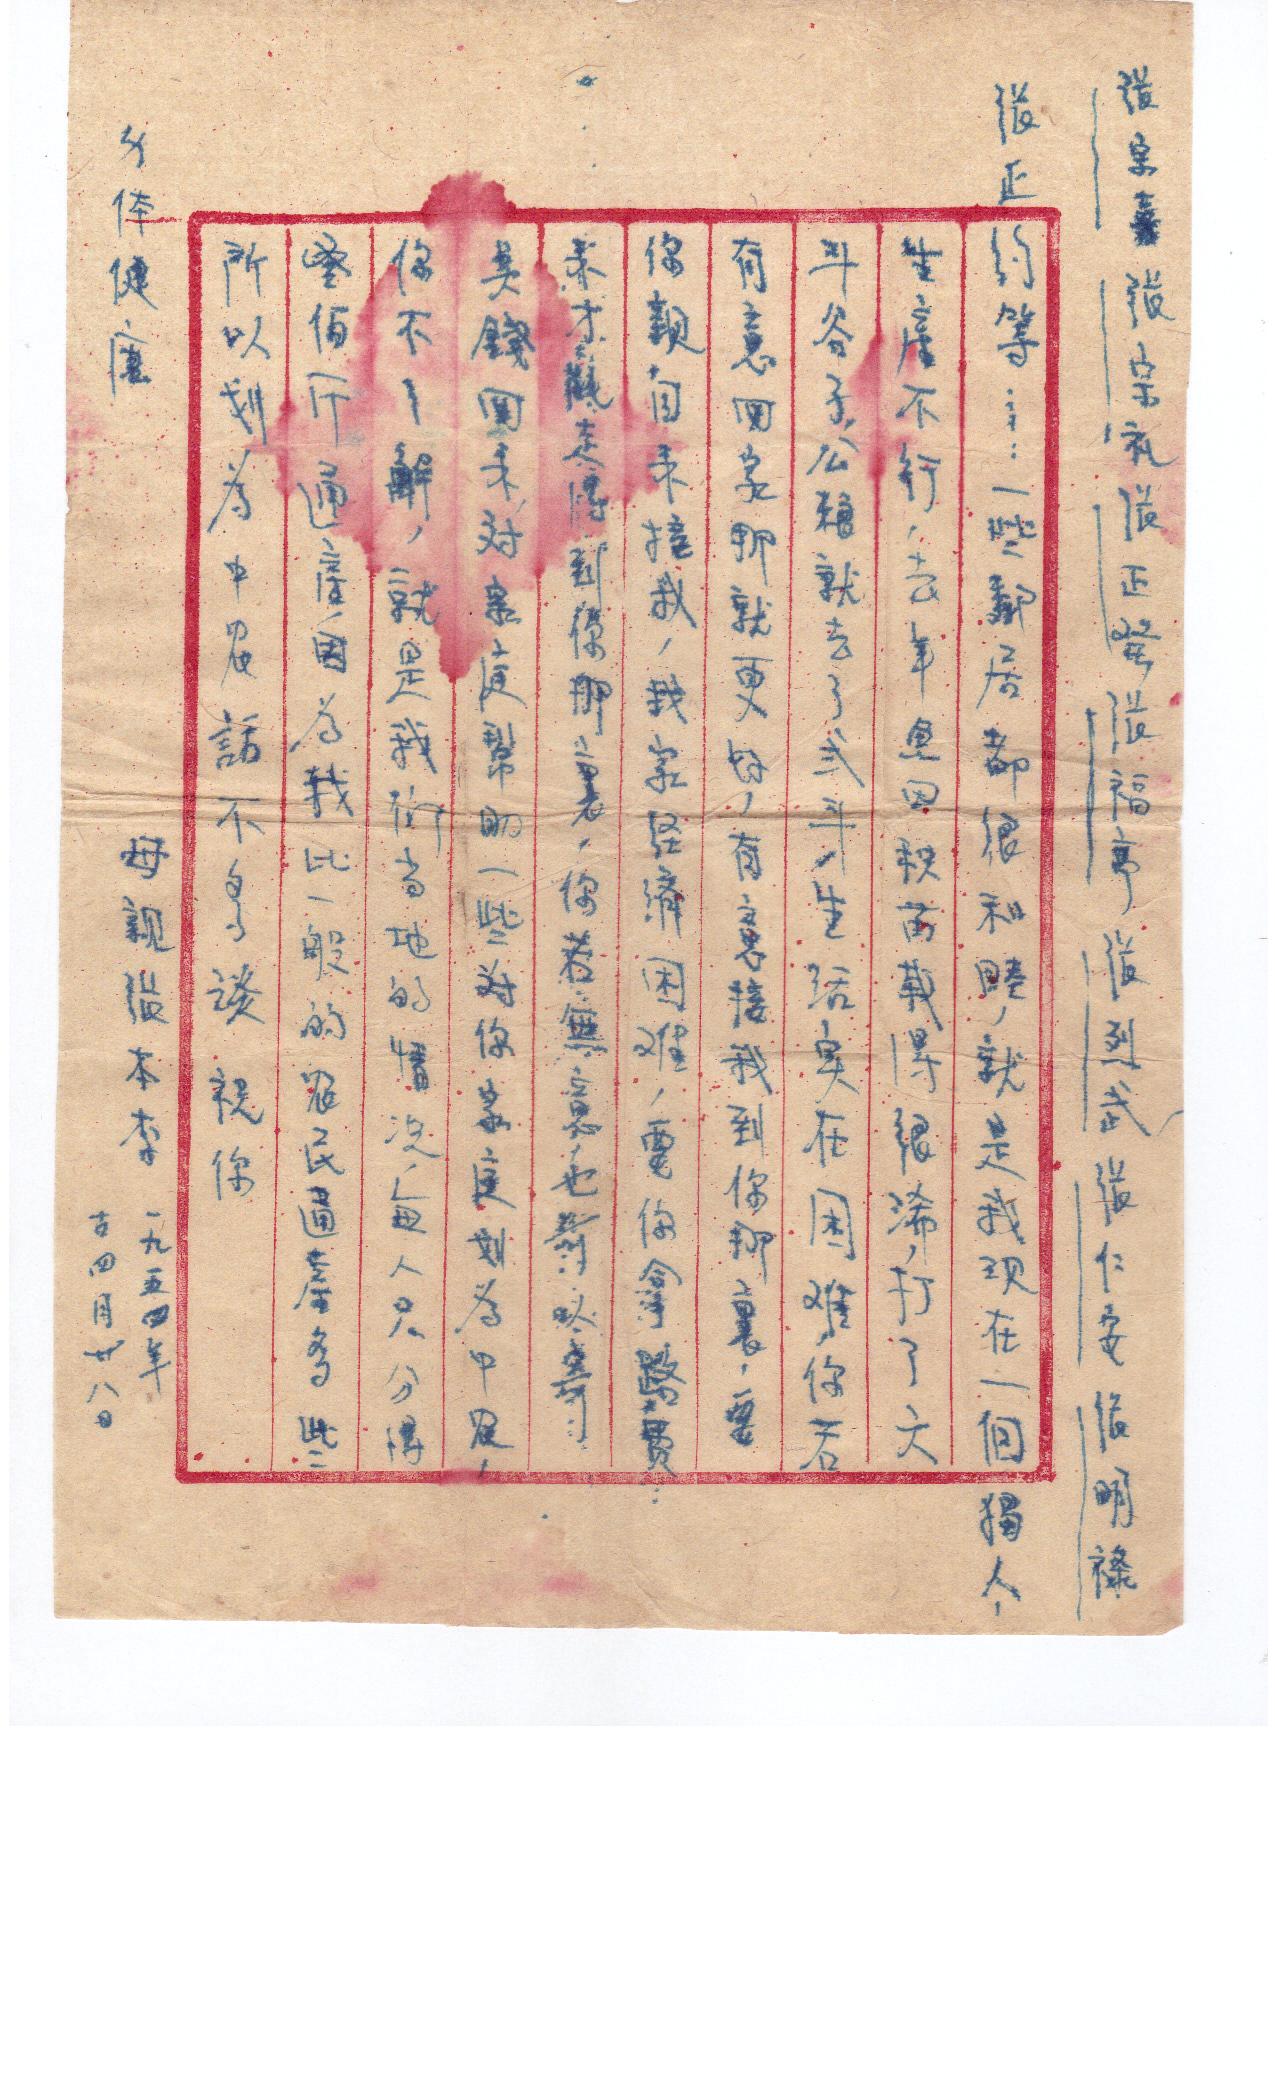 張宗嘉 張宗礼 張正瑩 張福亭 張烈武 張仁安 張明祿
張正約等：一些鄰居都很和睦，就是我現在一個獨人，
生產不行，去年魚田秧苗栽得很稀，打了六
斗谷子，公糧就去了弍斗，生活实在困难，你若
有意回家那就更好，有意接我到你那裏，要
你親自來接我，我家经濟困难，要你拿路費
來才能走得到你那裏，你若無意，也可以寄
錢回来，对家庭幫助一些，对你家庭划為中农，
你不了解，就是我们当地的情況，每人只分得
佰斤通產，因为我比一般的农民通產多些
所以划為中农 話不多談 祝你
身体健康
母親張本李 一九五四年
古四月廿八日